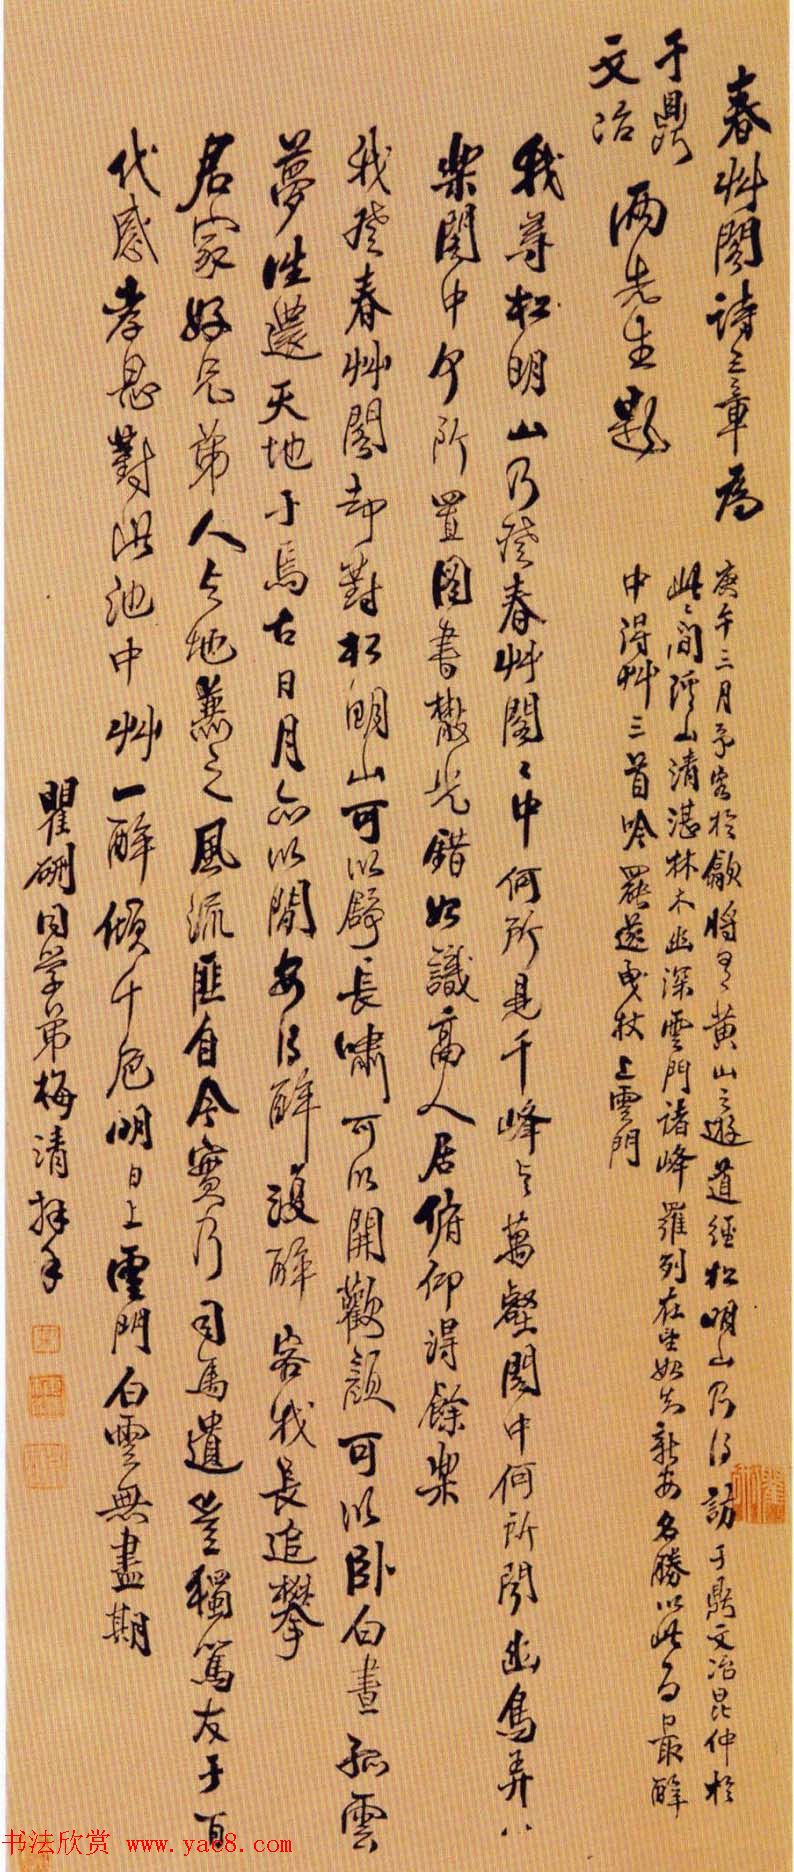 春艸閣詩三章為
于鼎
文冶
兩先生題
庚午三月予客於歙將有黃山之遊道經松明山乃得訪于鼎文冶昆仲於
此間溪山清湛林木幽深雲門諸峰羅列在望始知新安名勝以此為最醉
中得艸三首吟罷遂曳杖上雲門
我尋松明山乃登春艸閣閣中何所見千峰與萬壑閣中何所聞幽鳥弄八
樂閣中何所置圖書散光錯如識高人居俯仰得餘樂
我登春艸閣却對松明山可以舒長嘯可以開歡顏可以臥白晝孤雲
夢往還天地于焉古日月亦以閒安得醉復醉客我長追攀
君家好兄弟人與地兼之風流匪自今實乃司馬遺豈獨篤友于百
代感孝思對此池中艸一醉傾千卮明日上雲門白雲無盡期
瞿硎同學弟梅清拜手
书法欣赏 www.yac8.com